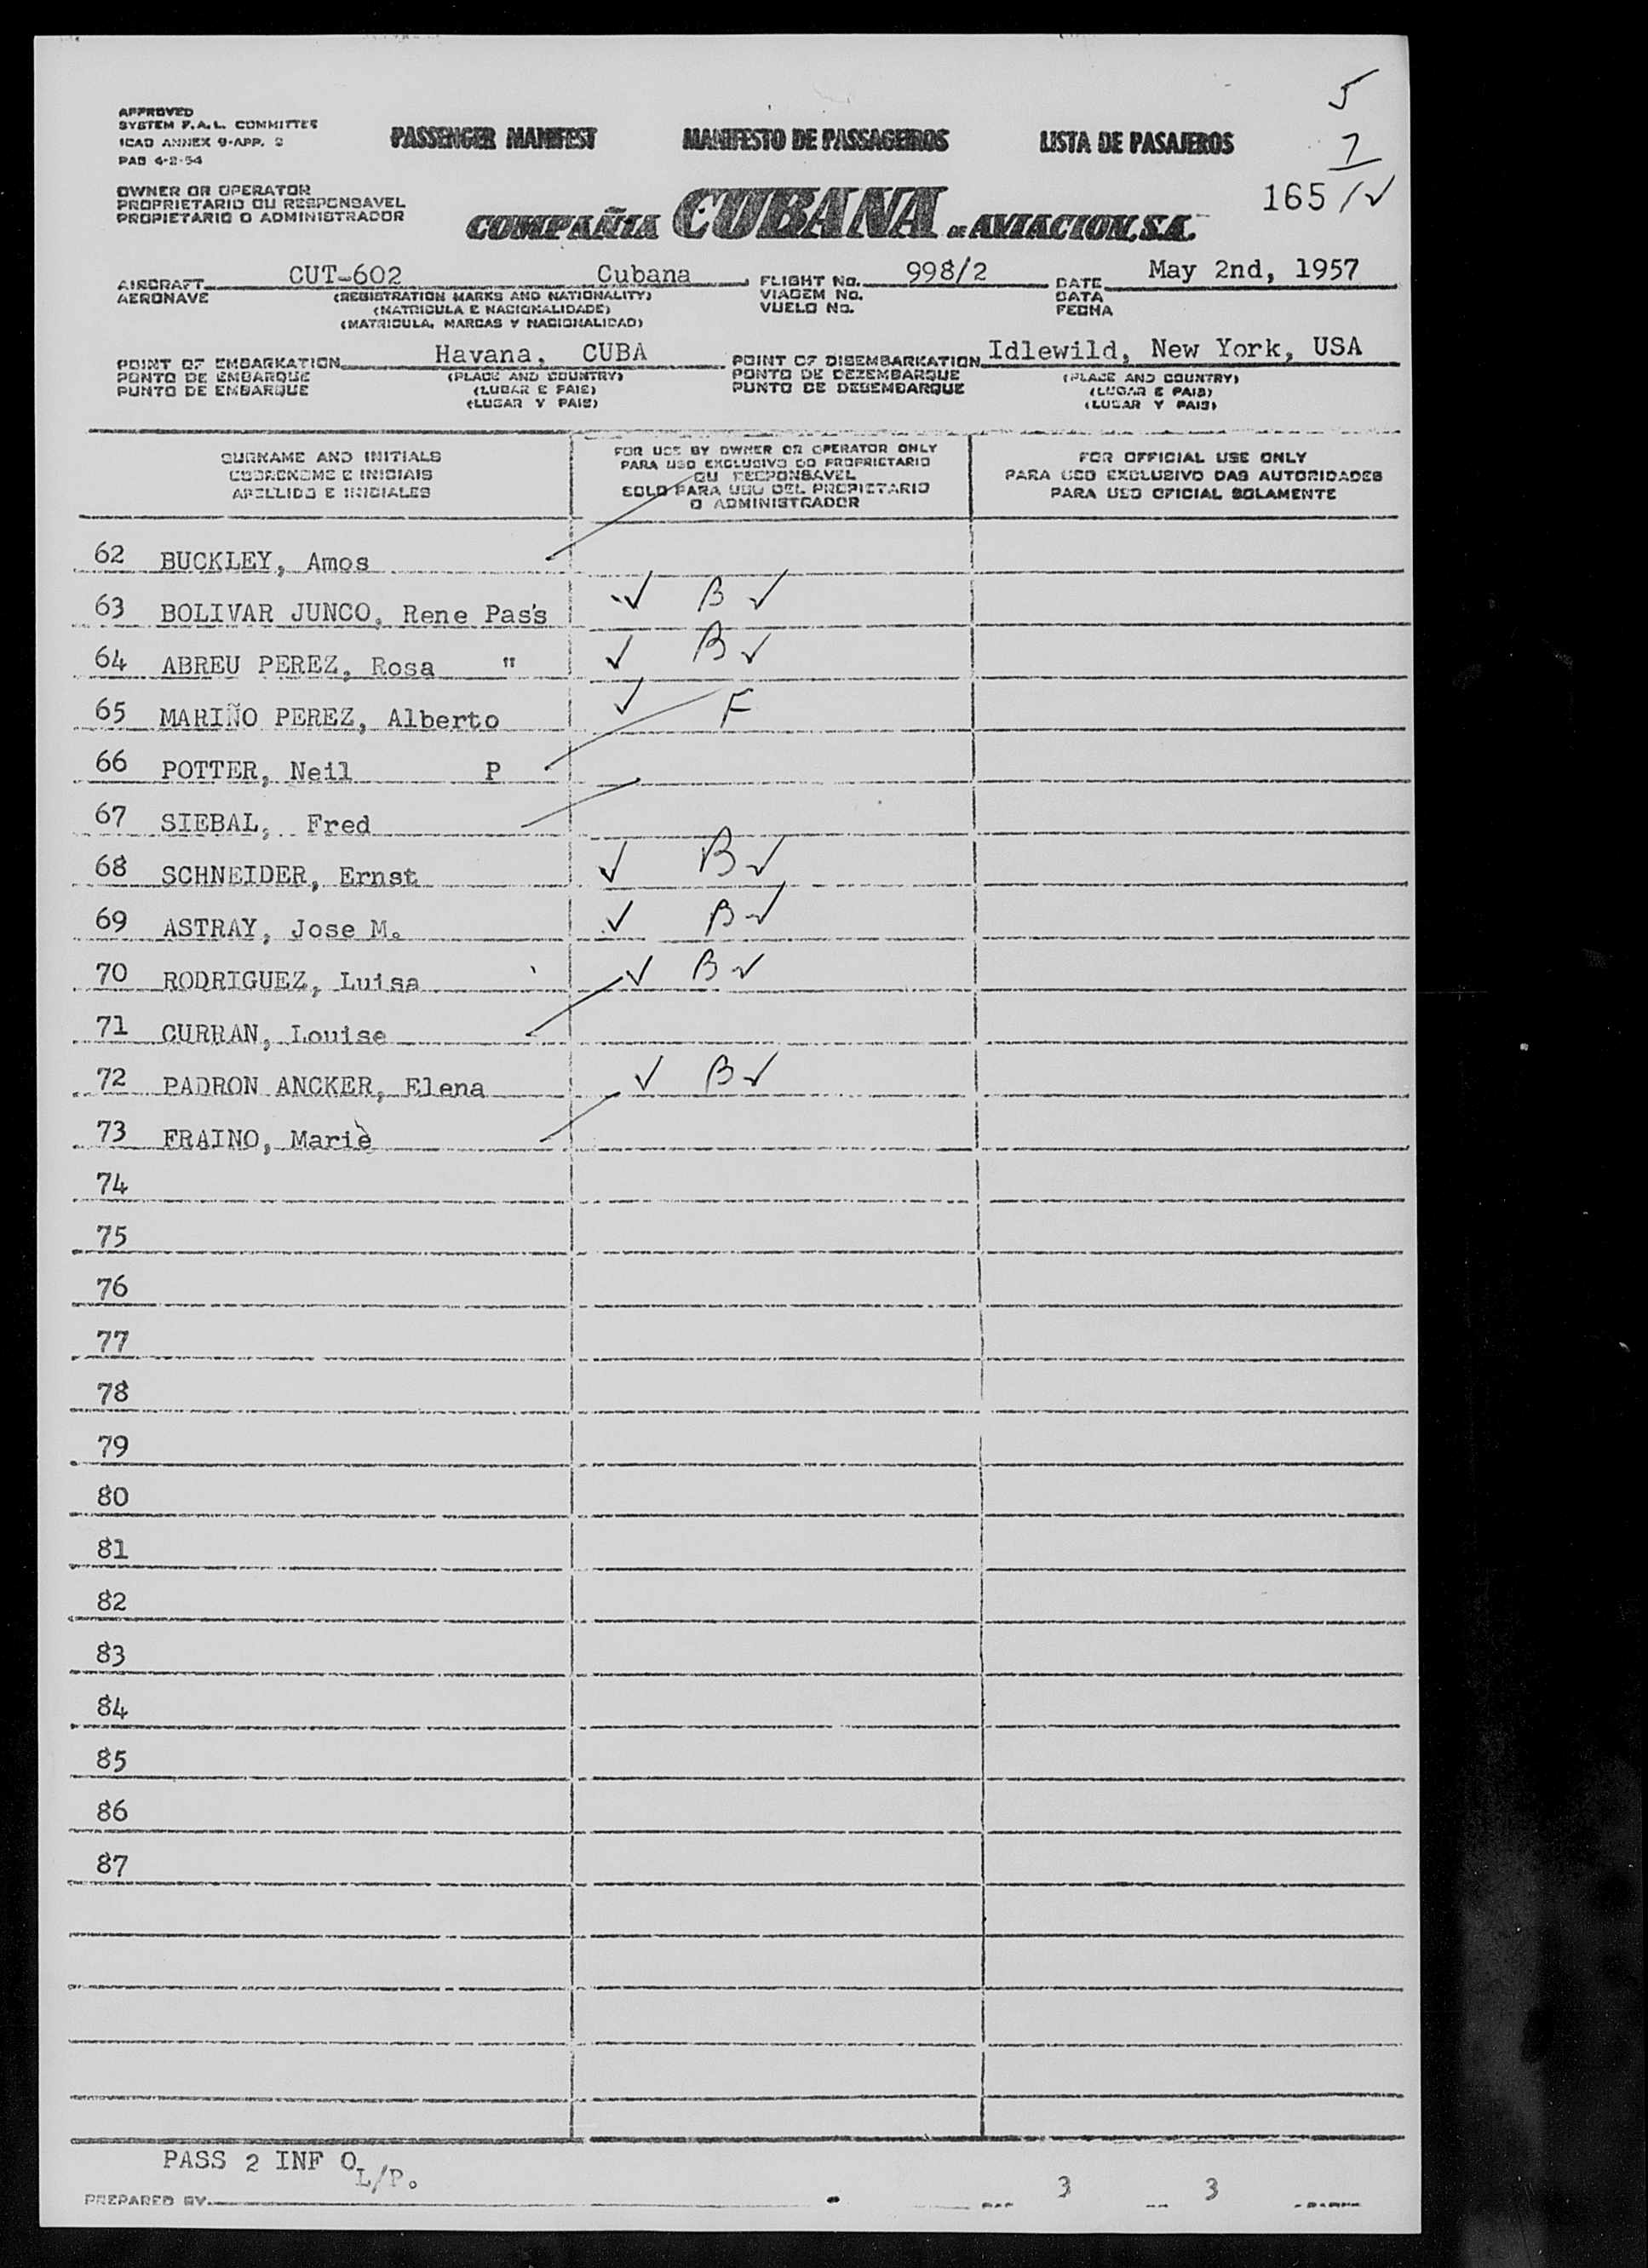 5
APPROVED
SYSTEM F.A.L. COMMITTEE
ICAO ANNEX 9-APP. 3
PAD 4-2-54
PASSENGER MANIFEST MANIFESTO DE PASSAGEIROS LISTA DE PASAJEROS
OWNER OR OPERATOR
PROPRIETARIO OU RESPONSAVEL
PROPIETARIO O ADMINISTRADOR
165/✓
COMPAÑIA CUBANA DE AVIACION, S.A.
AIRCRAFT CUT-602 Cubana FLIGHT No. 998/2 DATE May 2nd, 1957
AERONAVE (REGISTRATION MARKS AND NATIONALITY) VIAGEM No. DATA
(MATRICULA E NACIONALIDADE) VUELO No. FECHA
(MATRICULA, MARCAS Y NACIONALIDAD)
POINT OF EMBARKATION Havana, CUBA POINT OF DISEMBARKATION Idlewild, New York, USA
PONTO DE EMBARQUE (PLACE AND COUNTRY) PONTO DE DEZEMBARQUE (PLACE AND COUNTRY)
PUNTO DE EMBARQUE (LUGAR E PAIS) PUNTO DE DESEMBARQUE (LUGAR E PAIS)
(LUGAR Y PAIS) (LUGAR Y PAIS)
SURNAME AND INITIALS
COBRENOME E INICIAIS
APELLIDO E INICIALES
FOR USE BY OWNER OR OPERATOR ONLY
PARA USO EXCLUSIVO DO PROPRIETARIO
OU RESPONSAVEL
SOLO PARA USO DEL PROPIETARIO
O ADMINISTRADOR
FOR OFFICIAL USE ONLY
PARA USO EXCLUSIVO DAS AUTORIDADES
PARA USO OFICIAL SOLAMENTE
62 BUCKLEY, Amos
63 BOLIVAR JUNCO, Rene Pas's ✓ B ✓
64 ABREU PEREZ, Rosa " ✓ B ✓
65 MARIÑO PEREZ, Alberto ✓ F
66 POTTER, Neil P
67 SIEBAL, Fred
68 SCHNEIDER, Ernst ✓ B ✓
69 ASTRAY, Jose M. ✓ B ✓
70 RODRIGUEZ, Luisa ✓ B ✓
71 CURRAN, Louise
72 PADRON ANCKER, Elena ✓ B ✓
73 FRAINO, Marie
74
75
76
77
78
79
80
81
82
83
84
85
86
87
PASS 2 INF O
L/P.
PREPARED BY 3 3